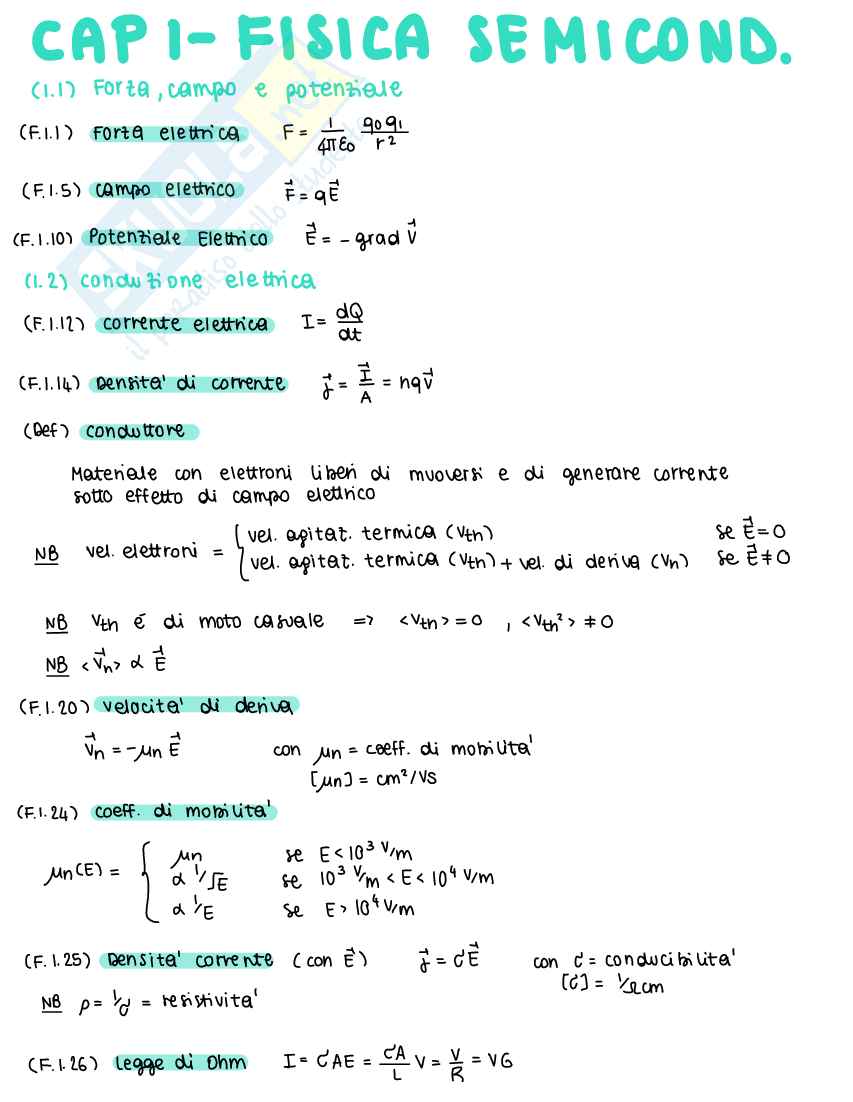 CAP 1 - FISICA SEMICOND.
(1.1) Forza, campo e potenziale
(F.1.1) Forza elettrica F = 1/4πε0 q0q1/r²
(F.1.5) campo elettrico F⃗ = qE⃗
(F.1.10) Potenziale Elettrico E⃗ = -grad V⃗
(1.2) conduzione elettrica
(F.1.12) corrente elettrica I = dQ/dt
(F.1.14) Densita' di corrente J⃗ = I⃗/A = nqv⃗
(Def) conduttore
Materiale con elettroni liberi di muoversi e di generare corrente
sotto effetto di campo elettrico
NB vel. elettroni = { vel. agitat. termica (Vth) se E⃗ = 0
vel. agitat. termica (Vth) + vel. di deriva (Vn) se E⃗ ≠ 0
NB Vth é di moto casuale => <Vth> = 0 , <Vth²> ≠ 0
NB <V⃗n> α E⃗
(F.1.20) velocita' di deriva
V⃗n = -μn E⃗ con μn = coeff. di mobilita'
[μn] = cm²/VS
(F.1.24) coeff. di mobilita'
μn(E) = { μn se E < 10³ V/m
α 1/√E se 10³ V/m < E < 10⁴ V/m
α 1/E se E > 10⁴ V/m
(F.1.25) Densita' corrente (con E⃗) J⃗ = σE⃗ con σ = conducibilita'
[σ] = 1/Ωcm
NB ρ = 1/σ = resistivita'
(F.1.26) Legge di Ohm I = σAE = σA/L V = V/R = VG
SKUOLA.net
il paradiso dello studente